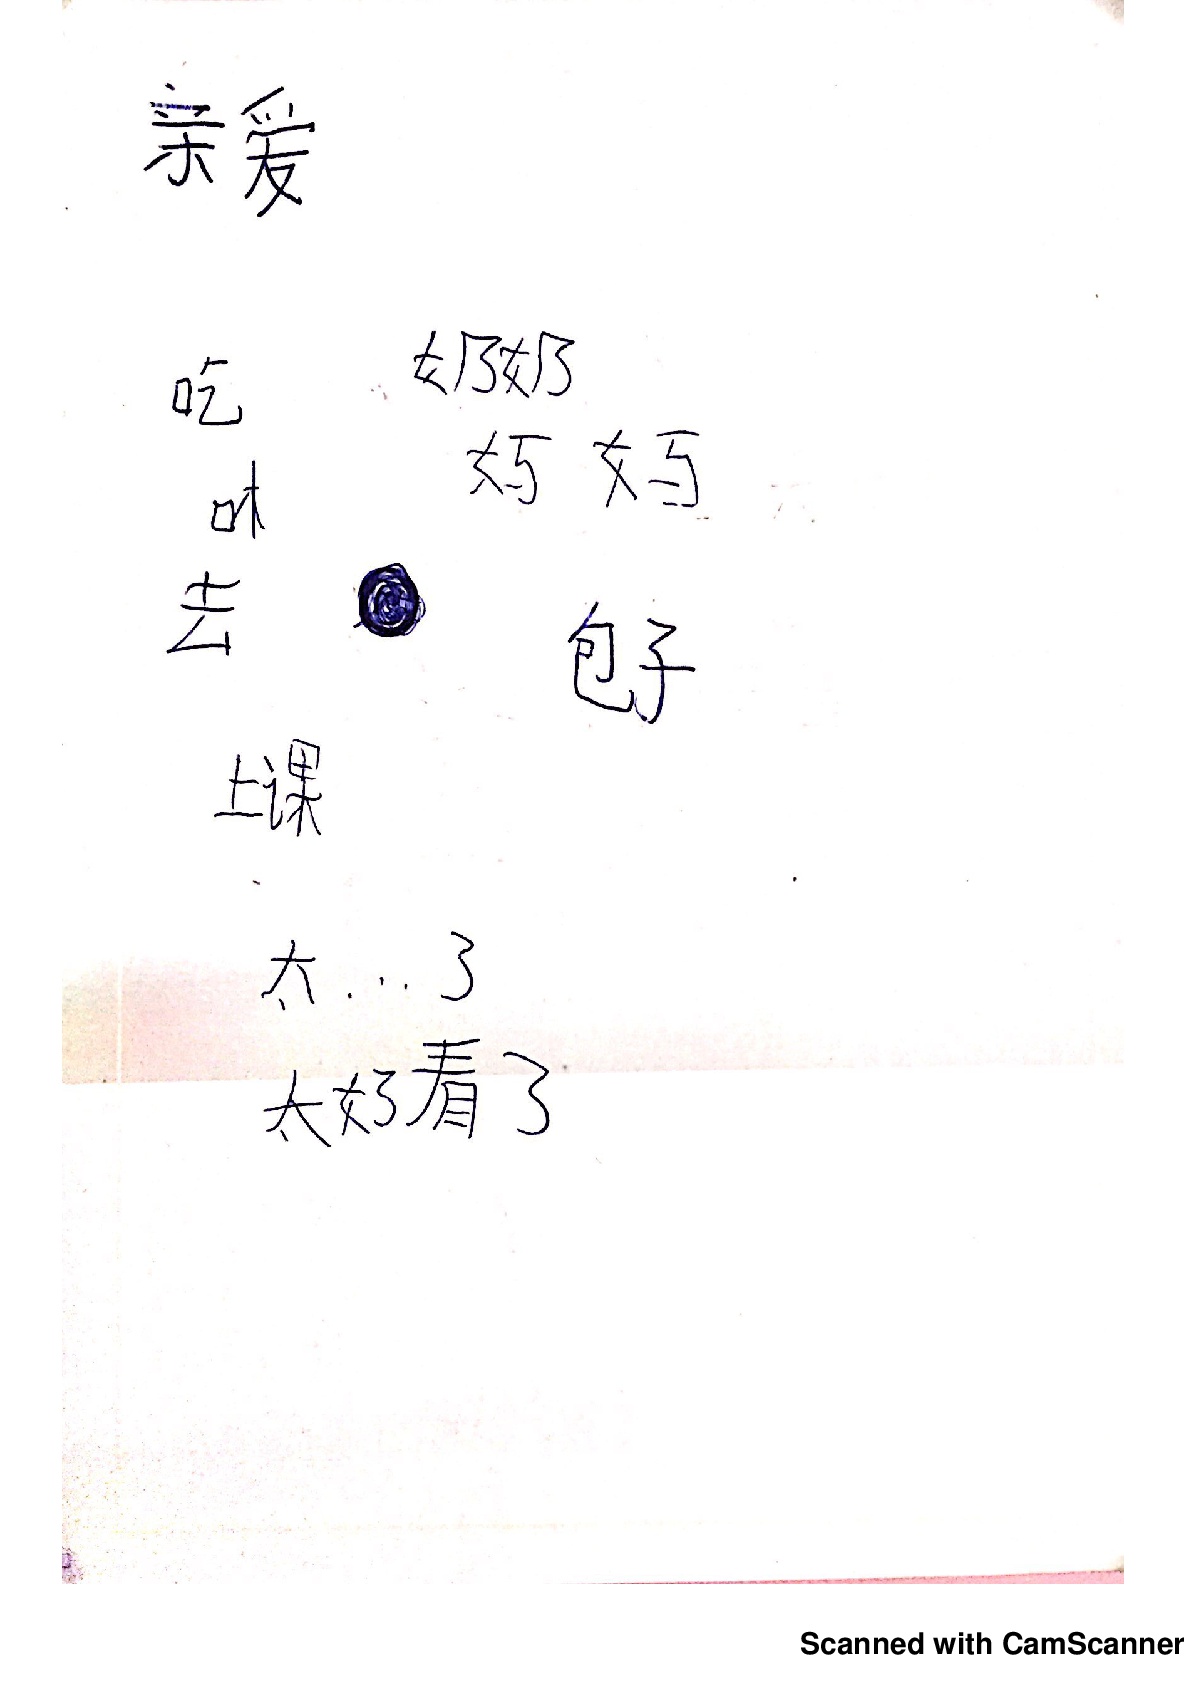 亲爱
奶奶
吃
妈妈
去
包子
上课
太...了
太好看了
Scanned with CamScanner